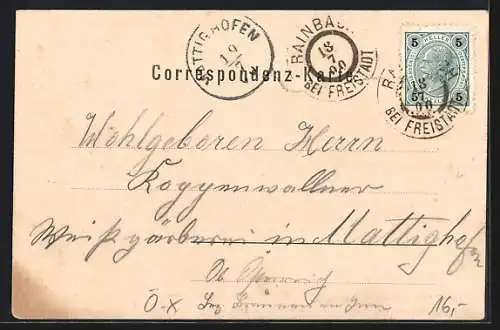 MATTIGHOFEN
19/7
RAINBACH
18 7 00
BEI FREISTADT
5 HELLER 5
RAINBACH
18 7 00
BEI FREISTADT
Correspondenz-Karte
Wohlgeboren Herrn
Koppenwallner
Weißgärberei in Mattighofen
O-X
16,-